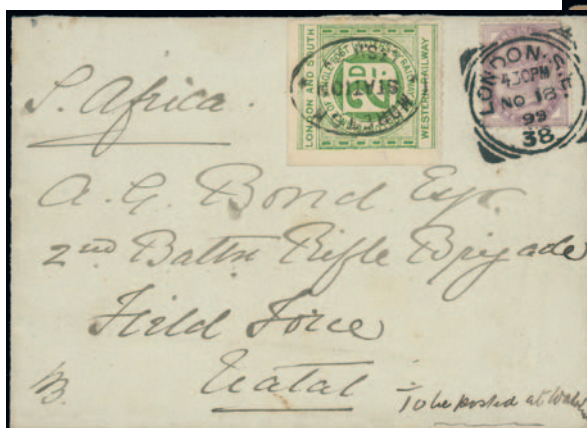 LONDON AND SOUTH
WESTERN RAILWAY
2D
STATION
LONDON. S.E
4.30PM
NO 18
99
38
S. Africa.
A. G. Bond Esq.
2nd Battn Rifle Brigade
Field Force
Natal
B.
To be posted at